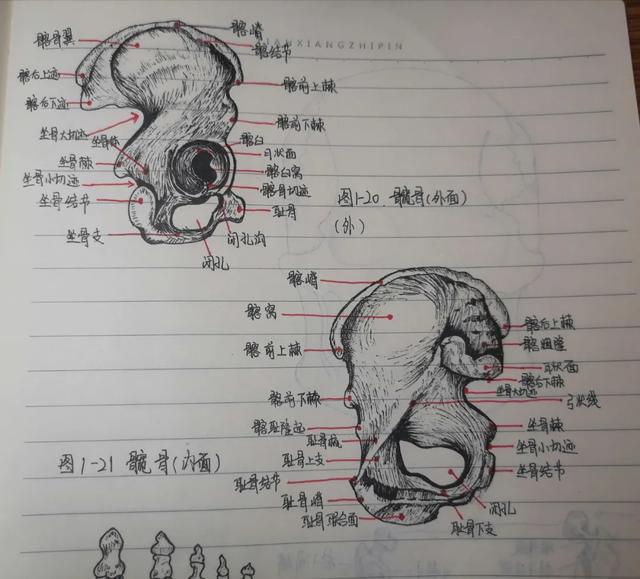 髂嵴
NXIANGZHIPIN
髂骨翼
髂结节
髂后上迹
髂前上棘
髂后下迹
髂前下棘
坐骨大切迹
坐骨体
髂臼
月状面
坐骨棘
髂臼窝
坐骨小切迹
髂骨切迹
坐骨结节
耻骨
图1-20. 髋骨(外面)
(外)
坐骨支
闭孔沟
闭孔
髂嵴
髂窝
髂后上棘
髂粗隆
髂前上棘
耳状面
髂后下棘
坐骨大切迹
髂前下棘
弓状线
髂耻隆起
坐骨棘
耻骨梳
坐骨小切迹
耻骨上支
坐骨结节
图1-21 髋骨(内面)
耻骨结节
耻骨嵴
闭孔
耻骨联合面
耻骨下支